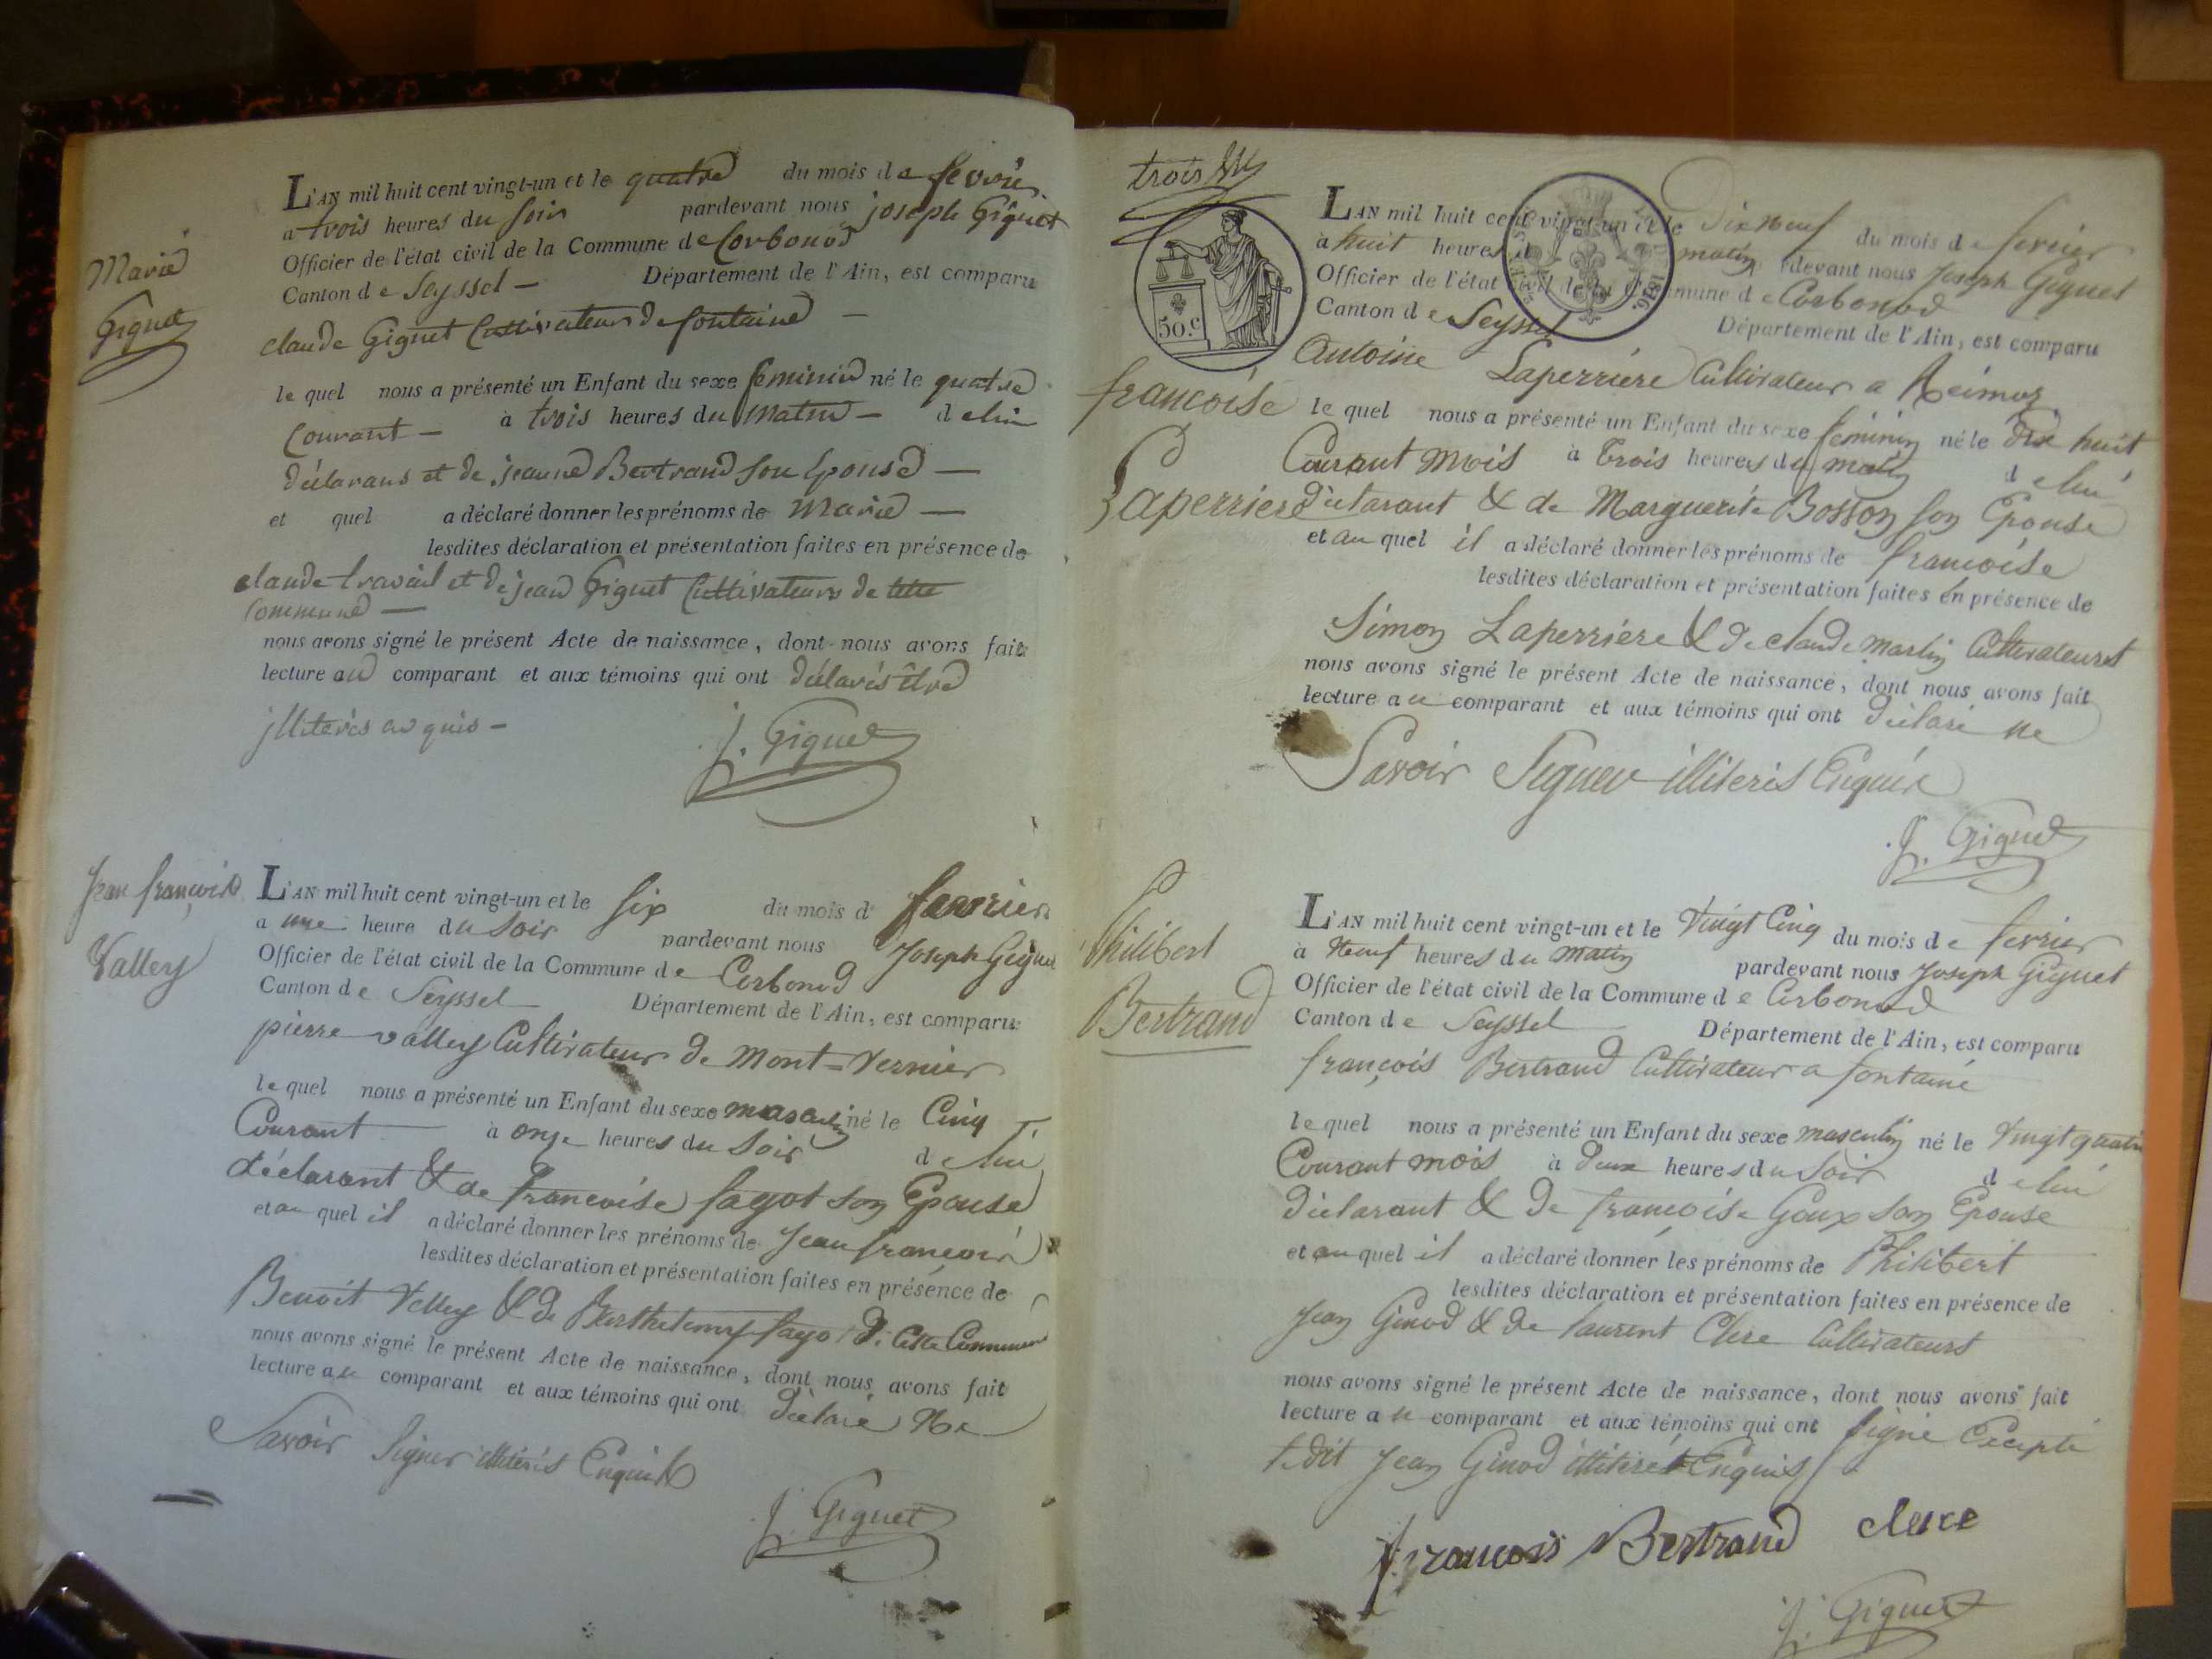 Marie
Giguet
L'AN mil huit cent vingt-un et le quatre du mois de fevrier
a trois heures du soir pardevant nous joseph Giguet
Officier de l'état civil de la Commune de Corbonod
Canton de Seyssel — Département de l'Ain, est comparu
claude Giguet Cultivateur de fontaine —
le quel nous a présenté un Enfant du sexe feminin né le quatre
Courant — à trois heures du matin — de lui
déclarans et de jeanne Bertrand son Epouse —
et quel a déclaré donner les prénoms de Marie —
lesdites déclaration et présentation faites en présence de
claude travail et de jean Giguet Cultivateurs de cette
Commune —
nous avons signé le présent Acte de naissance, dont nous avons fait
lecture au comparant et aux témoins qui ont déclarés être
jlliterés
J. Giguet
Jean françois
Valley
L'AN mil huit cent vingt-un et le six du mois d fevrier
a une heure du Soir pardevant nous Joseph Giguet
Officier de l'état civil de la Commune de Corbonod
Canton de Seyssel Département de l'Ain, est comparu
pierre valley Cultivateur de Mont-Vernier
le quel nous a présenté un Enfant du sexe masculin né le Cinq
Courant à onze heures du Soir de lui
déclarant & de francoise fagot son Epouse
et au quel il a déclaré donner les prénoms de Jean françois
lesdites déclaration et présentation faites en présence de
Benoit Velley & de Barthelemy fago de Cette Commune
nous avons signé le présent Acte de naissance, dont nous avons fait
lecture au comparant et aux témoins qui ont déclaré Ne
Savoir Signer illiterés Enquis
J. Giguet
trois
50.c
1816
françoise
Laperriere
L'AN mil huit cent vingt-un et le Dix Neuf du mois de fevrier
à huit heures du matin pardevant nous Joseph Giguet
Officier de l'état civil de la Commune de Corbonod
Canton de Seyssel Département de l'Ain, est comparu
Antoine Laperriére Cultivateur a Reimoz
le quel nous a présenté un Enfant du sexe féminin né le Dix huit
Courant Mois à Trois heures du matin de lui
Déclarant & de Marguerite Bosson son Epouse
et au quel il a déclaré donner les prénoms de francoise
lesdites déclaration et présentation faites en présence de
Simon Laperriére & de claude martin Cultivateurs
nous avons signé le présent Acte de naissance, dont nous avons fait
lecture au comparant et aux témoins qui ont Déclaré ne
Savoir Signer illiterés Enquis
J. Giguet
Philibert
Bertrand
L'AN mil huit cent vingt-un et le Vingt Cinq du mois de fevrier
à Neuf heures du matin pardevant nous Joseph Giguet
Officier de l'état civil de la Commune de Corbonod
Canton de Seyssel Département de l'Ain, est comparu
françois Bertrand Cultivateur a fontaine
le quel nous a présenté un Enfant du sexe masculin né le Vingt quatre
Courant mois à Deux heures du Soir de lui
Déclarant & de françoise Goux son Epouse
et au quel il a déclaré donner les prénoms de Philibert
lesdites déclaration et présentation faites en présence de
Jean Ginod & de laurent Clere Cultivateurs
nous avons signé le présent Acte de naissance, dont nous avons fait
lecture au comparant et aux témoins qui ont signé Excepté
ledit Jean Ginod illiteré Enquis
francois Bertrand clere
J. Giguet